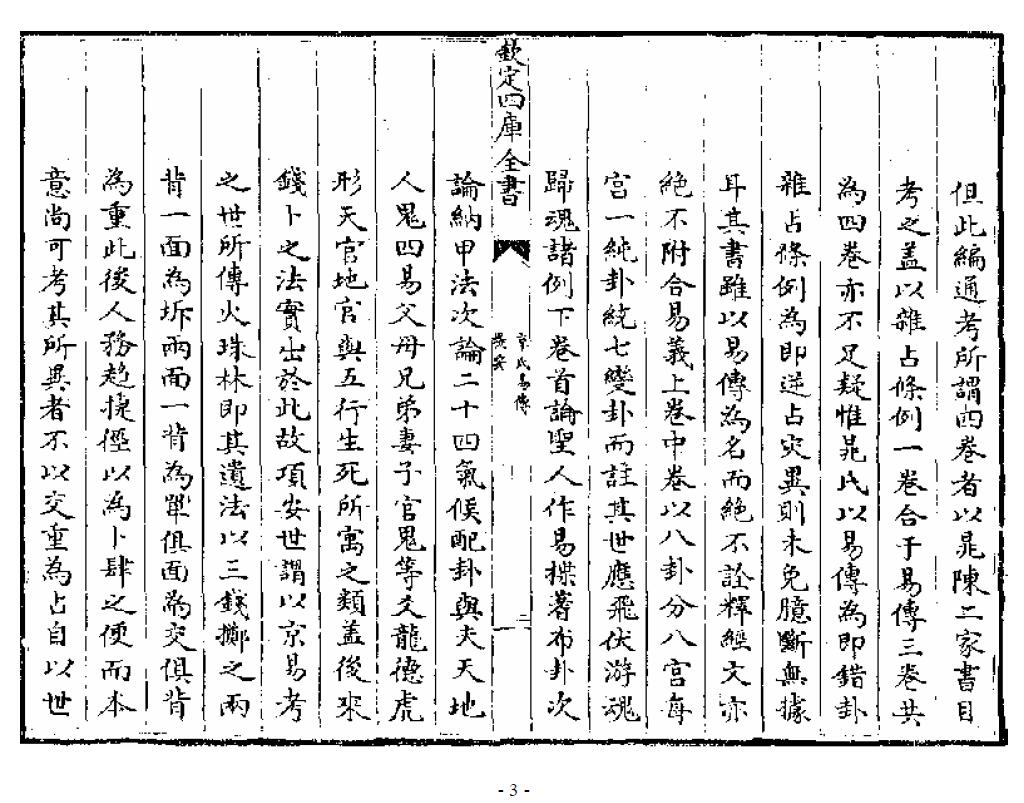 但此編通考所謂四卷者以晁陳二家書目
考之蓋以雜占條例一卷合于易傳三卷共
為四卷亦不足疑惟晁氏以易傳為即錯卦
雜占條例為即逆占灾異則未免臆斷無據
耳其書雖以易傳為名而絶不詮釋經文亦
絶不附合易義上卷中卷以八卦分八宫每
宫一純卦統七變卦而註其世應飛伏游魂
歸魂諸例下卷首論聖人作易揲蓍布卦次
欽定四庫全書
京氏易傳
提要
二
論納甲法次論二十四氣候配卦與夫天地
人鬼四易父母兄弟妻子官鬼等爻龍德虎
形天官地官與五行生死所寓之類蓋後來
錢卜之法實出於此故項安世謂以京易考
之世所傳火珠林即其遺法以三錢擲之兩
背一面為坼兩面一背為單俱面為交俱背
為重此後人務趋捷徑以為卜肆之便而本
意尚可考其所異者不以交重為占自以世
- 3 -